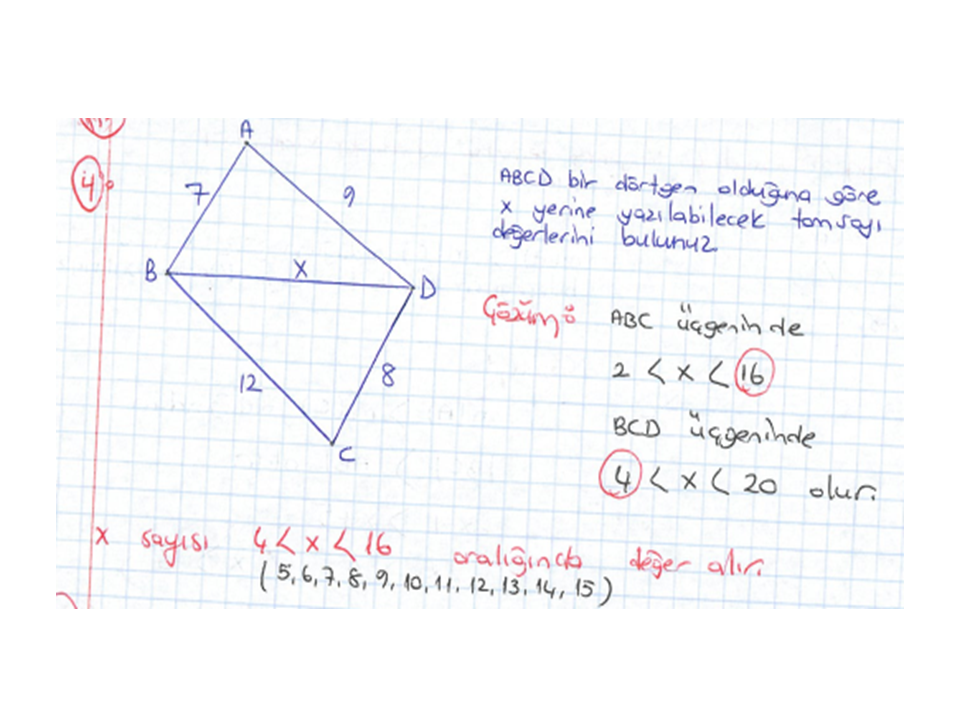 4.
A
7
9
B
x
D
12
8
C
ABCD bir dörtgen olduğuna göre
x yerine yazılabilecek tamsayı
değerlerini bulunuz
Çözüm:
ABC üçgeninde
2 < x < 16
BCD üçgeninde
4 < x < 20 olur.
x sayısı 4 < x < 16 aralığında değer alır.
(5, 6, 7, 8, 9, 10, 11, 12, 13, 14, 15)